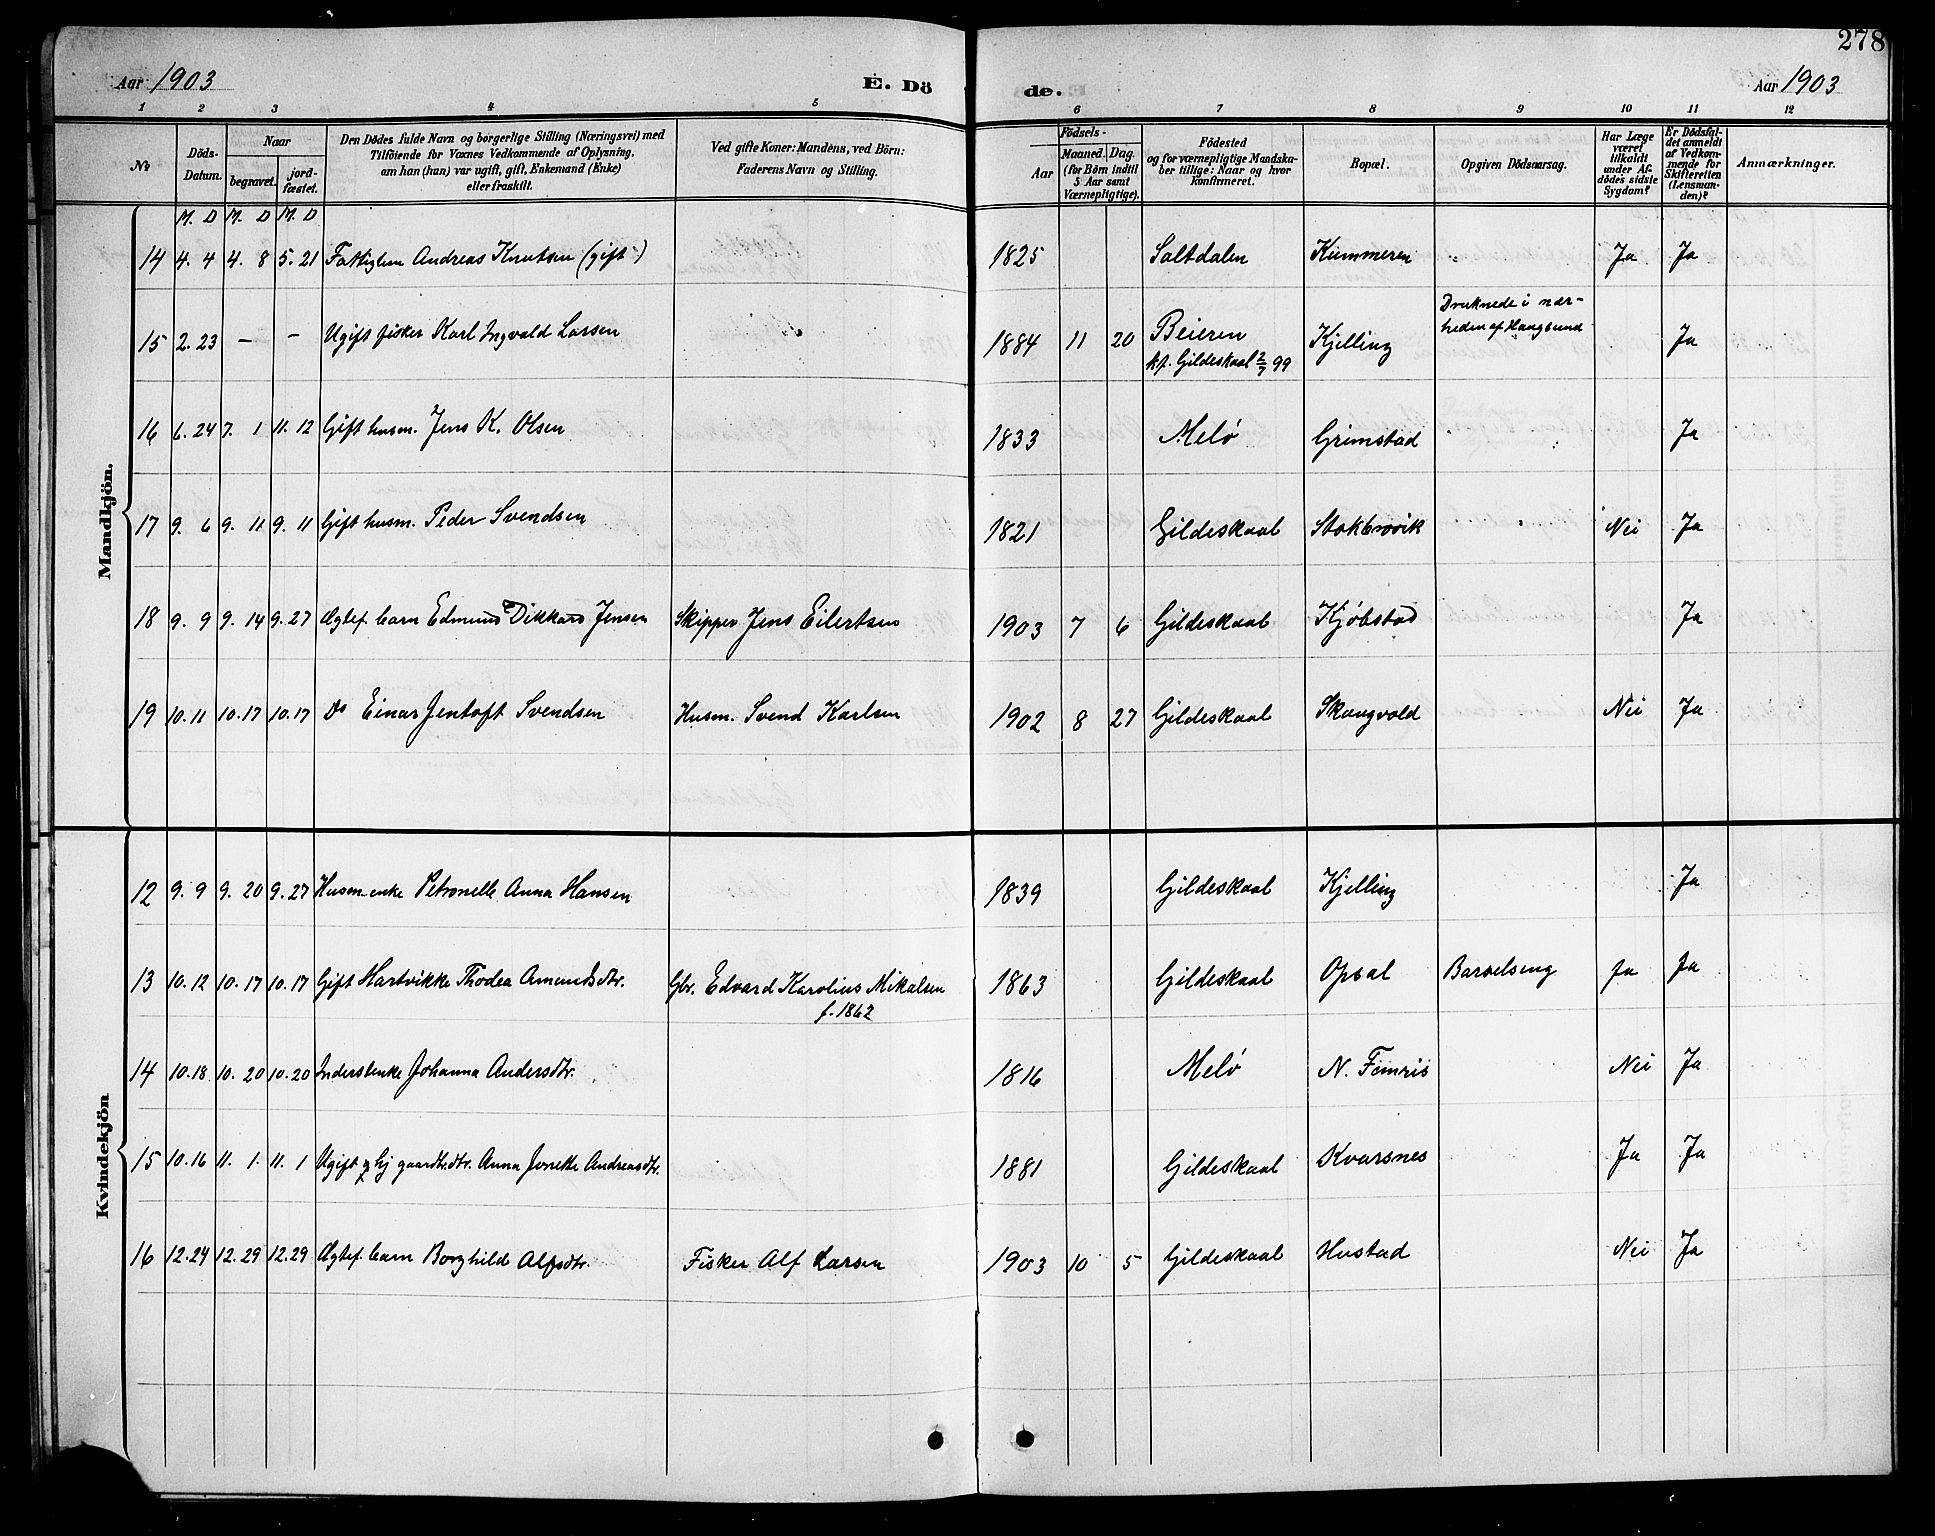 278
Aar 1903 E. Dö de. Aar 1903
1 2 3 4 5 6 7 8 9 10 11 12
No
Döds-Datum.
Naar
begravet.
jord-fæstet.
Den Dödes fulde Navn og borgerlige Stilling (Næringsvei) med
Tilföiende for Voxnes Vedkommende af Oplysning,
om han (hun) var ugift, gift, Enkemand (Enke)
eller fraskilt.
Ved gifte Koner: Mandens, ved Börn:
Faderens Navn og Stilling.
Födsels-
Aar
Maaned. Dag.
(for Börn indtil
5 Aar samt
Værnepligtige).
Födested
og for værnepligtige Mandska-
ber tillige: Naar og hvor
konfirmeret.
Bopæl.
Opgiven Dödsaarsag.
Har Læge
været
tilkaldt
under Af-
dödes sidste
Sygdom?
Er Dödsfal-
det anmeldt
af Vedkom-
mende for
Skifteretten
(Lensman-
den)?
Anmærkninger.
Mandkjön.
M. D M. D M. D
14 4. 4 4. 8 5. 21 Fattiglem Andreas Knutsen (gift) 1825 Saltdalen Kummeren " Ja Ja
15 2. 23 — — Ugift fisker Karl Ingvald Larsen 1884 11 20 Beieren Kjelling Druknede i nær- Ja
kf. Gildeskaal 2/7 99 heden af Haugsund
16 6. 24 7. 1 11. 12 Gift husm. Jens K. Olsen 1833 Melø Grimstad Ja
17 9. 6 9. 11 9. 11 Gift husm. Peder Svendsen 1821 Gildeskaal Stokbrovik Nei Ja
18 9. 9 9. 14 9. 27 Ægtef. barn Edmund Dikkard Jensen Skipper Jens Eilertsen 1903 7 6 Gildeskaal Kjøbstad Ja
19 10. 11 10. 17 10. 17 Do Einar Jentoft Svendsen Husm. Svend Karlsen 1902 8 27 Gildeskaal Skaugvold Nei Ja
Kvindekjön
12 9. 9 9. 20 9. 27 Husm. enke Petronelle Anna Hansen 1839 Gildeskaal Kjelling Ja
13 10. 12 10. 17 10. 17 Gift Hartvikke Thodea Amundsdtr. Gbr. Edvard Karolius Mikalsen 1863 Gildeskaal Opsal Barselseng Ja Ja
f. 1862
14 10. 18 10. 20 10. 20 Inderstenke Johanna Andersdtr. 1816 Melø N. Femris Nei Ja
15 10. 16 11. 1. 11. 1 Ugift hj gaardbr.dtr. Anna Jonette Andreasdtr. 1881 Gildeskaal Kvarsnes Ja Ja
16 12. 24 12. 29 12. 29 Ægtef. barn Borghild Alfsdtr. Fisker Alf Larsen 1903 10 5 Gildeskaal Hustad Nei Ja